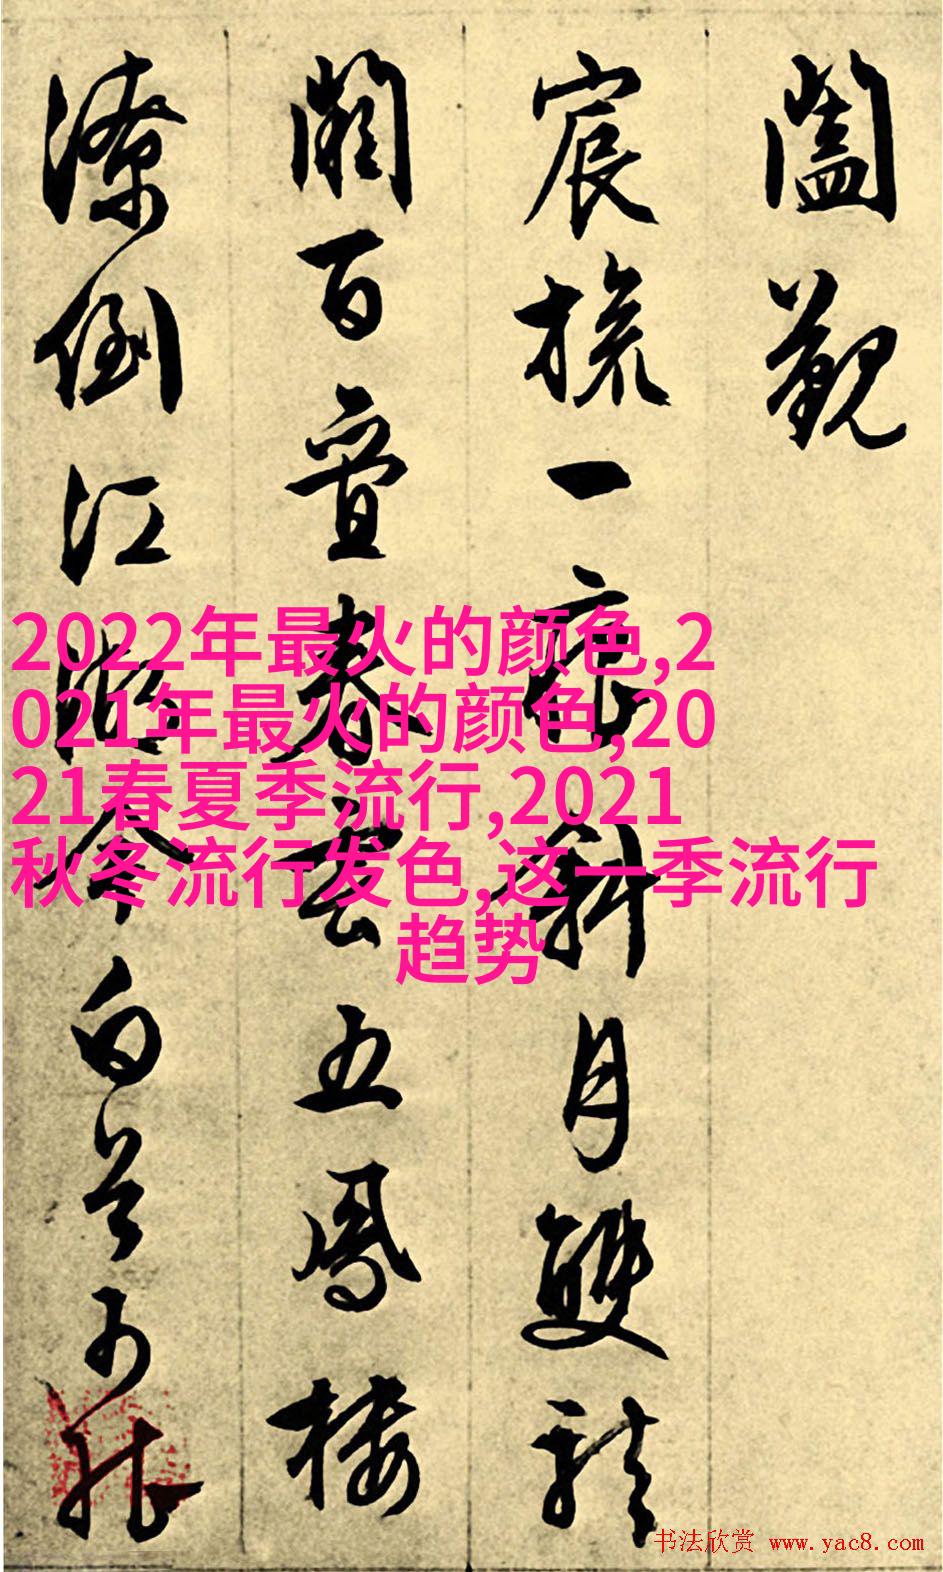 闔覲
宸旒一痕斜月雙龍
闕百疊春雲五鳳樓
潦倒江湖今白首可能
2022年最火的颜色,2
021年最火的颜色,20
21春夏季流行,2021
秋冬流行发色,这一季流行
趋势
书法欣赏 www.yac8.com